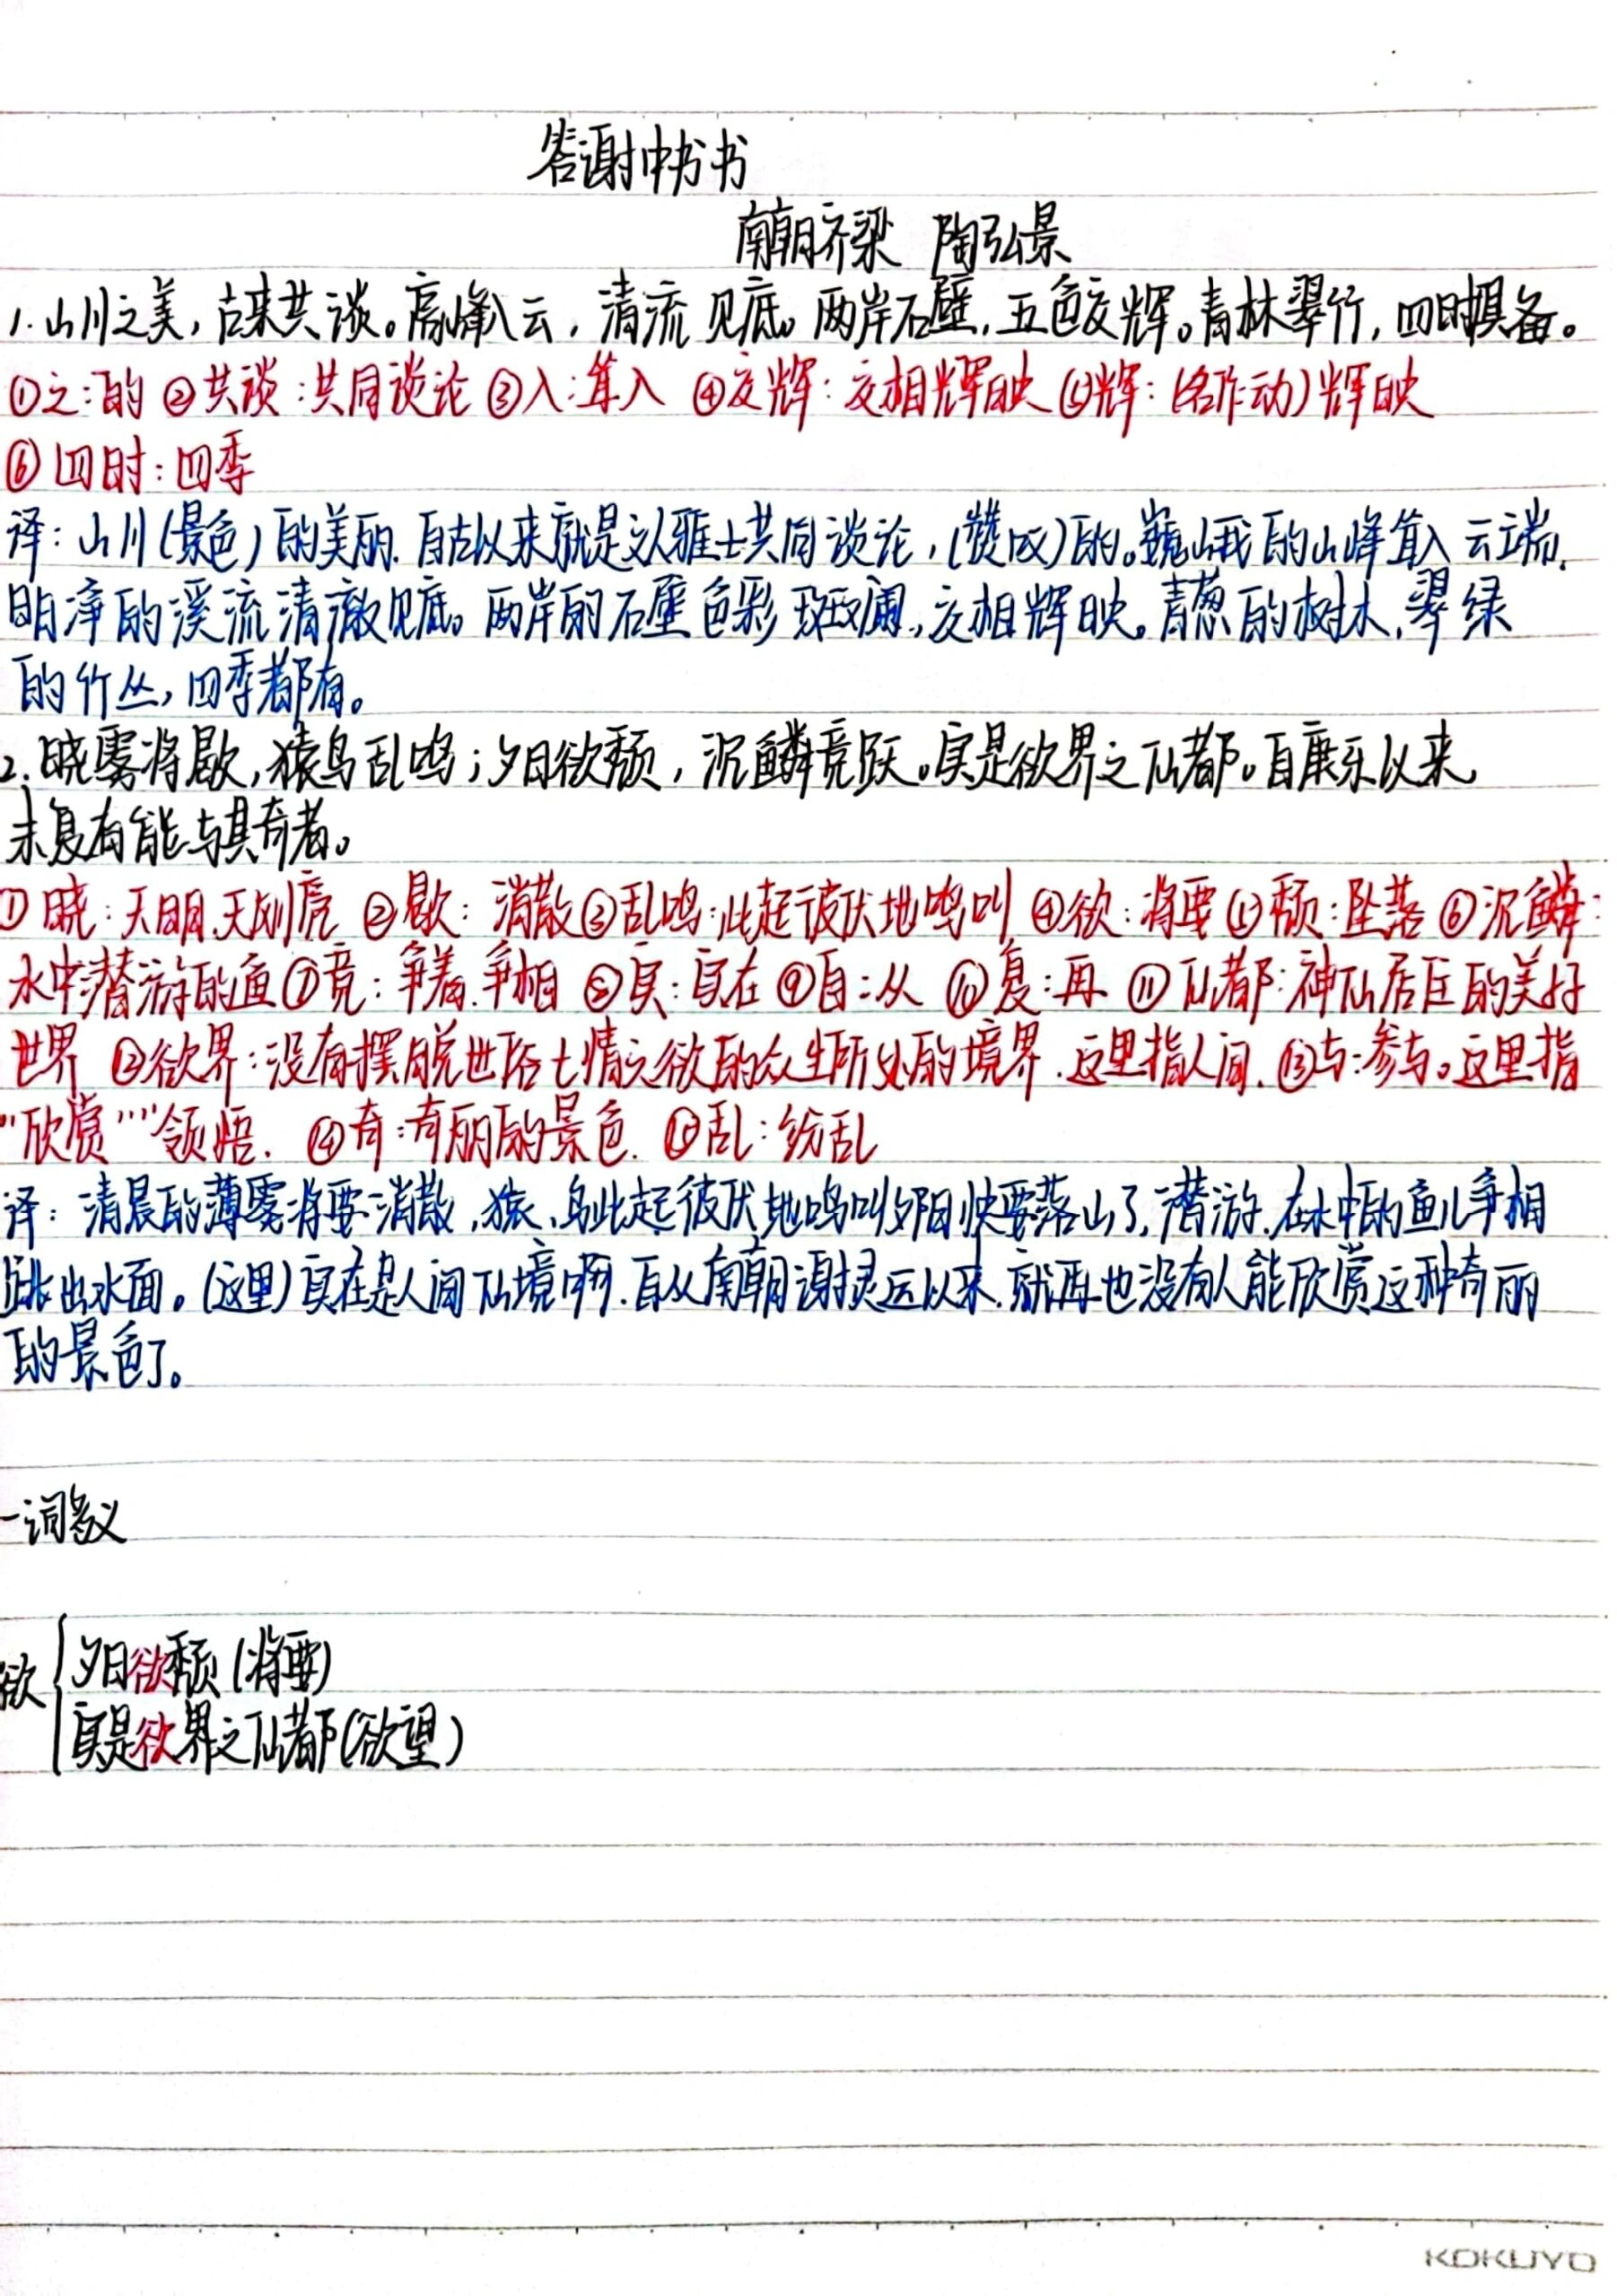 答谢中书书
南朝齐梁 陶弘景
1.山川之美，古来共谈。高峰入云，清流见底。两岸石壁，五色交辉。青林翠竹，四时俱备。
①之:的 ②共谈:共同谈论 ③入:耸入 ④交辉:交相辉映 ⑤辉:(名作动)辉映
⑥四时:四季
译:山川(景色)的美丽.自古以来就是文人雅士共同谈论,(赞叹)的。巍峨的山峰耸入云端,
明净的溪流清澈见底。两岸的石壁色彩斑斓,交相辉映。青葱的树木,翠绿
的竹丛,四季都有。
2.晓雾将歇,猿鸟乱鸣;夕日欲颓,沉鳞竞跃。实是欲界之仙都。自康乐以来,
未复有能与其奇者。
①晓:天明,天刚亮 ②歇:消散 ③乱鸣:此起彼伏地鸣叫 ④欲:将要 ⑤颓:坠落 ⑥沉鳞:
水中潜游的鱼 ⑦竞:争着.争相 ⑧实:实在 ⑨自:从 ⑩复:再 ⑪仙都:神仙居住的美好
世界 ⑫欲界:没有摆脱世俗七情六欲的众生所处的境界.这里指人间.⑬与:参与。这里指
“欣赏”“领悟. ⑭奇:奇丽的景色. ⑮乱:纷乱
译:清晨的薄雾将要消散,猿、鸟此起彼伏地鸣叫夕阳快要落山了,潜游.在水中的鱼儿争相
跳出水面。(这里)实在是人间仙境啊.自从南朝谢灵运以来.就再也没有人能欣赏这种奇丽
的景色了。
一词多义
欲
夕日欲颓(将要)
实是欲界之仙都(欲望)
KOKUYO